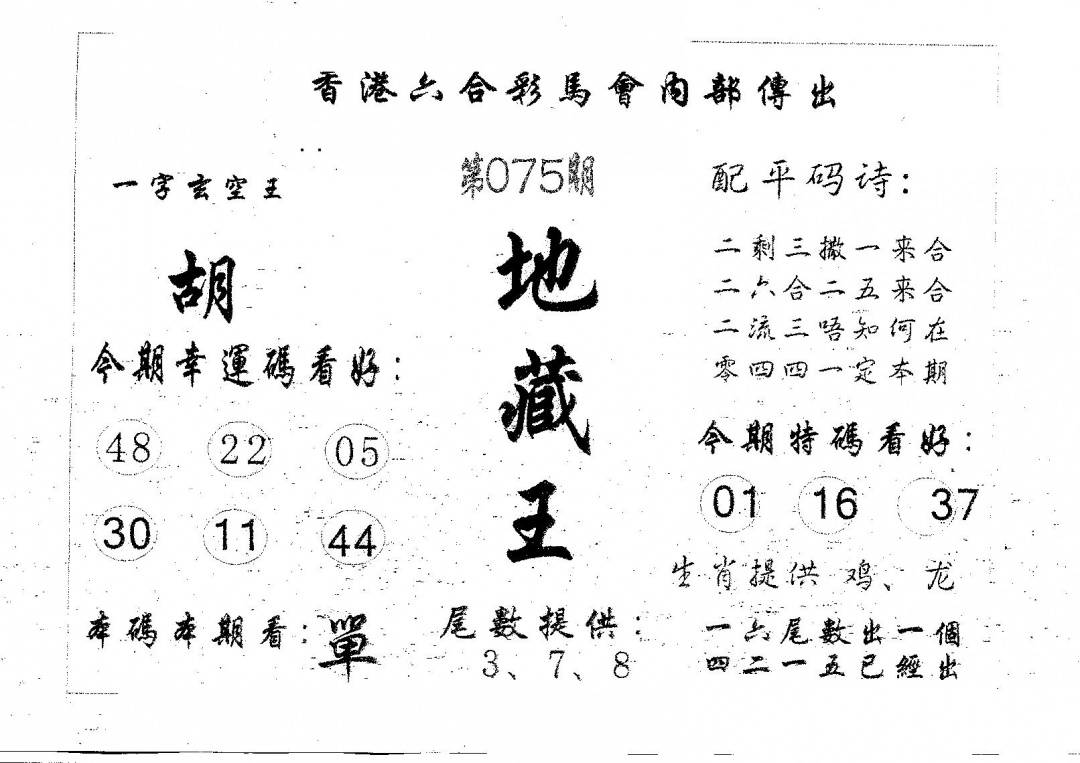 香港六合彩馬會內部傳出
一字玄空王
胡
今期幸運碼看好：
48 22 05
30 11 44
本碼本期看：單
第075期
地
藏
王
尾數提供：
3、7、8
配平码诗：
二剩三撒一来合
二六合二五来合
二流三唔知何在
零四四一定本期
今期特碼看好：
01 16 37
生肖提供 鸡、龙
一六尾數出一個
四二一五已經出